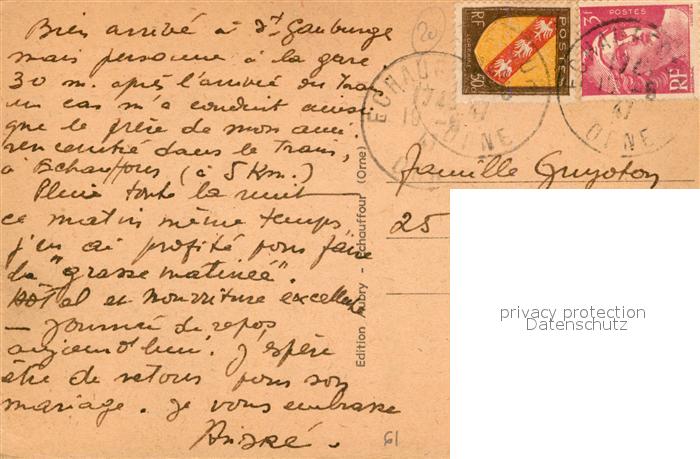 Bien arrivé à St Gauburge
mais personne à la gare
30 m. après l'arrivée du train
un car m'a conduit ainsi
que le père de mon ami
rencontré dans le train,
à Echauffour (à 5 Km.)
Pluie toute la nuit
ce matin même temps
j'en ai profité pour faire
la "grasse matineé".
Hôtel et nourriture excellente
— Journée de repos
aujourd'hui. J'espère
être de retour pour son
mariage. Je vous embrasse
André.
61
Edition Aubry - Echauffour (Orne)
20
RF
POSTES
50c
POSTES
3f
RF
ORNE
ORNE
Famille Guyoton
25
privacy protection
Datenschutz